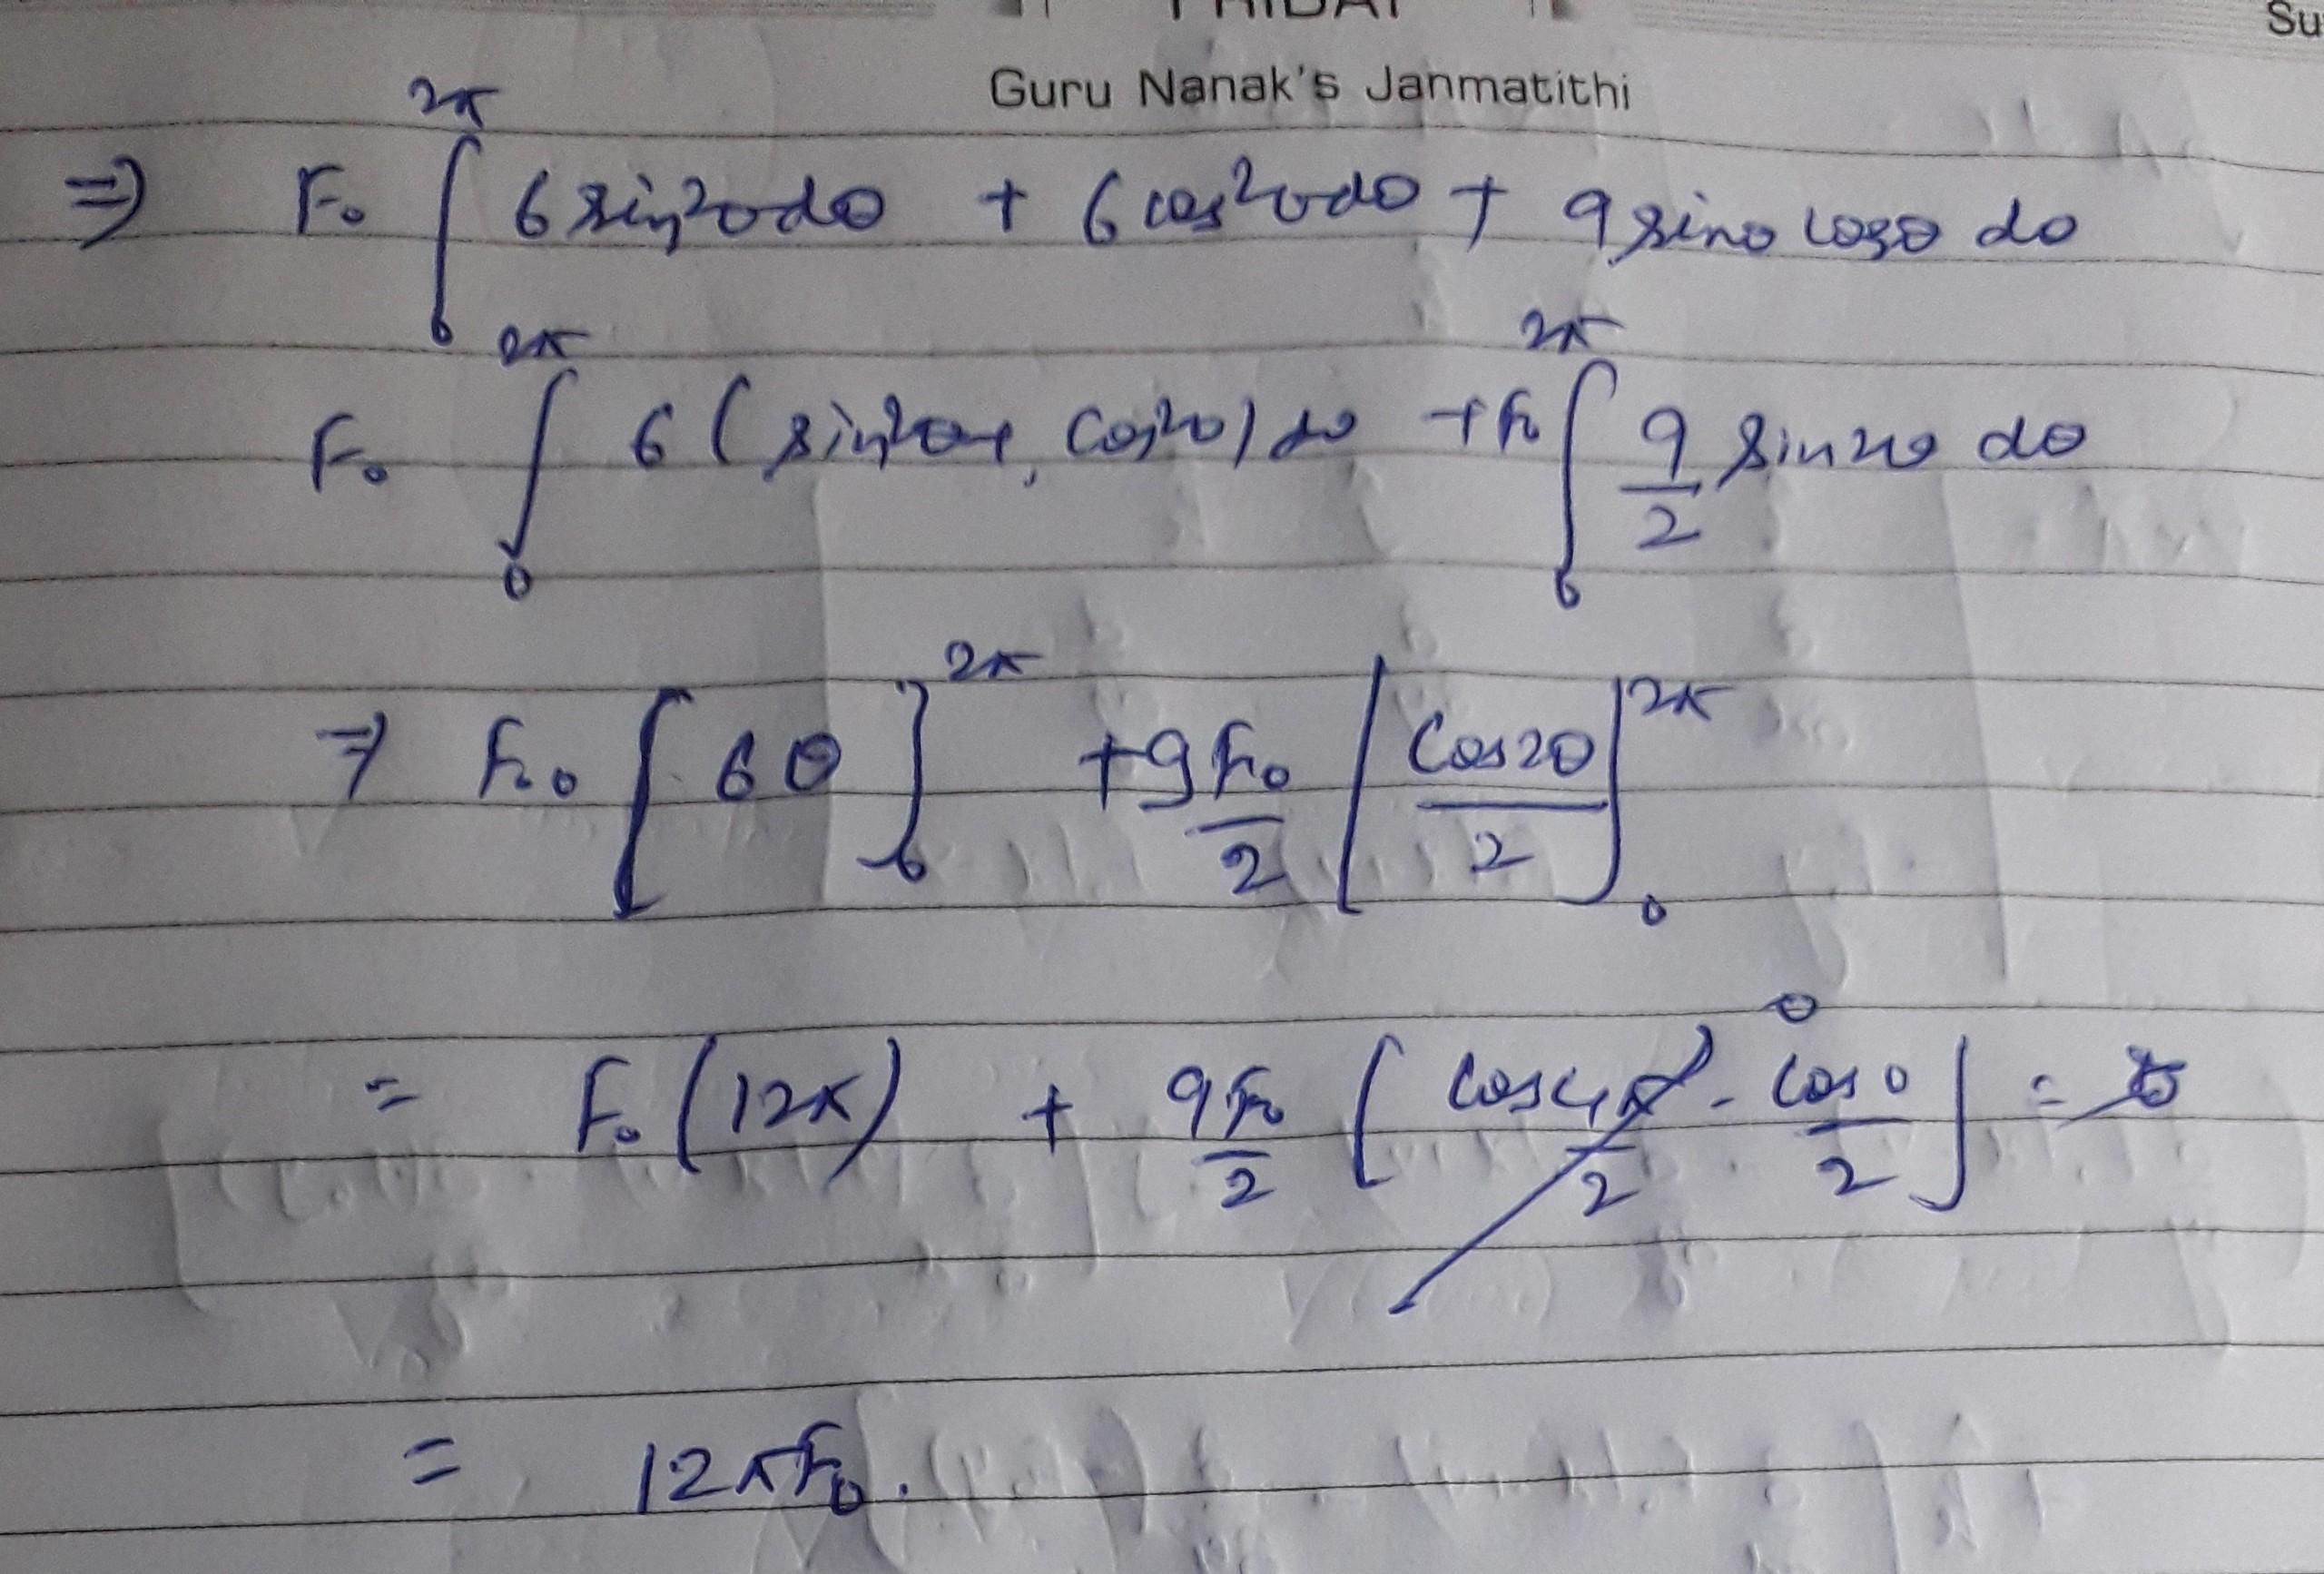 Su
Guru Nanak's Janmatithi
⇒ F₀ ∫₀^2π 6 sin²θ dθ + 6 cos²θ dθ + 9 sinθ cosθ dθ
F₀ ∫₀^2π 6 (sin²θ + cos²θ) dθ + F₀ ∫₀^2π 9/2 sin2θ dθ
⇒ F₀ [6θ]₀^2π + 9F₀/2 [cos2θ/2]₀^2π
= F₀ (12π) + 9F₀/2 [cos4π/2 - cos0/2] = 0
= 12πF₀.